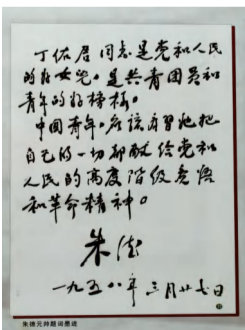 丁佑君同志是党和人民
的好女儿。是共青团员和
青年的好榜样。
中国青年。应该学习她把
自己的一切都献给党和
人民的高度阶级觉悟
和革命精神。
朱德
一九五八年三月廿七日
朱德元帅题词墨迹